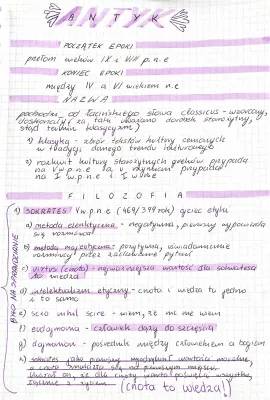 ANTYK
POCZĄTEK EPOKI
przełom wieków IX i VIII p.n.e
KONIEC EPOKI
między IV a VI wiekiem n.e
NAZWA
pochodzi od łacińskiego słowa classicus - wzorowy,
doskonały (za taki uważano dorobek starożytny,
stąd termin klasycyzm)
1) klasyka - zbiór tekstów kultury cenionych
w tradycji danego trendu kulturowego
2) rozkwit kultury starożytnych greków przypada
na V w p.n.e. za u rzymian przypada
na I w p.n.e i I w n.e
FILOZOFIA
1) SOKRATES V w. p.n.e (469/399 rok) ojciec etyki
a) metoda elenktyczna - negatywna, pierwszy wypowiada
się rozmówca
b) metoda majeutyczna - pozytywna, uświadomienie
rozmówcy przez zadawanie pytań
c) virtus (cnota) - najważniejsza wartość dla sokratesa
to wiedza
d) intelektualizm etyczny - cnota i wiedza to jedno
i to samo
e) scio nihil scire - wiem, że nic nie wiem
f) eudajmonia - człowiek dąży do szczęścia
g) dajmonion - pośrednik między człowiekiem a bogiem
h) sokrates jako pierwszy wyodrębnił wartości moralne,
a cnota znalazła się na pierwszym miejscu.
Uważał on, że dla cnoty warto poświęcić wszystko,
łącznie z życiem
(cnota to wiedza!)